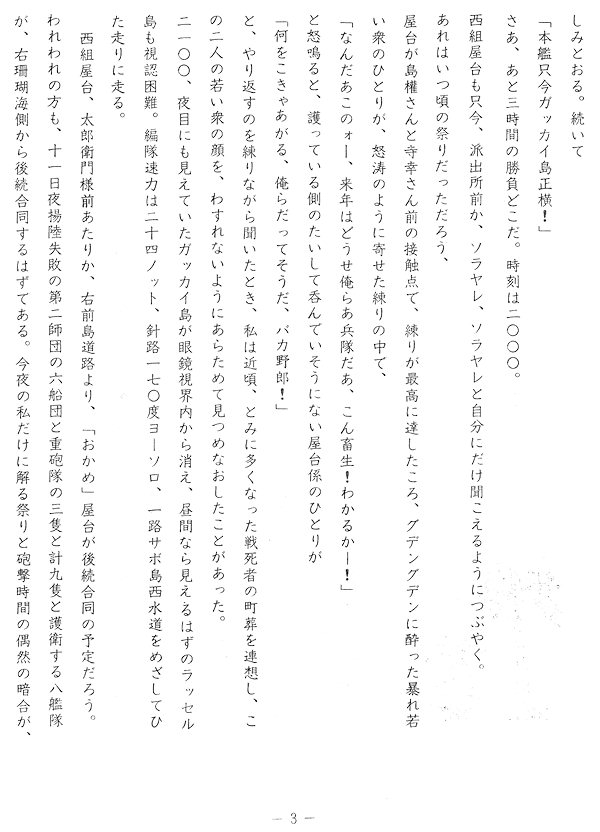 しみとおる。続いて
「本艦只今ガッカイ島正横！」
さあ、あと三時間の勝負どこだ。時刻は二〇〇〇。
西組屋台も只今、派出所前か、ソラヤレ、ソラヤレと自分にだけ聞こえるようにつぶやく。
あれはいつ頃の祭りだっただろう、
屋台が島權さんと寺幸さん前の接触点で、練りが最高に達したころ、グデングデンに酔った暴れ若
い衆のひとりが、怒涛のように寄せた練りの中で、
「なんだあこのォー、来年はどうせ俺らあ兵隊だあ、こん畜生！わかるかー！」
と怒鳴ると、護っている側のたいして呑んでいそうにない屋台係のひとりが
「何をこきゃあがる、俺らだってそうだ、バカ野郎！」
と、やり返すのを練りながら聞いたとき、私は近頃、とみに多くなった戦死者の町葬を連想し、こ
の二人の若い衆の顔を、わすれないようにあらためて見つめなおしたことがあった。
二一〇〇、夜目にも見えていたガッカイ島が眼鏡視界内から消え、昼間なら見えるはずのラッセル
島も視認困難。編隊速力は二十四ノット、針路一七〇度ヨーソロ、一路サボ島西水道をめざしてひ
た走りに走る。
西組屋台、太郎衛門様前あたりか、右前島道路より、「おかめ」屋台が後続合同の予定だろう。
われわれの方も、十一日夜揚陸失敗の第二師団の六船団と重砲隊の三隻と計九隻と護衛する八艦隊
が、右珊瑚海側から後続合同するはずである。今夜の私だけに解る祭りと砲撃時間の偶然の暗合が、
― 3 ―